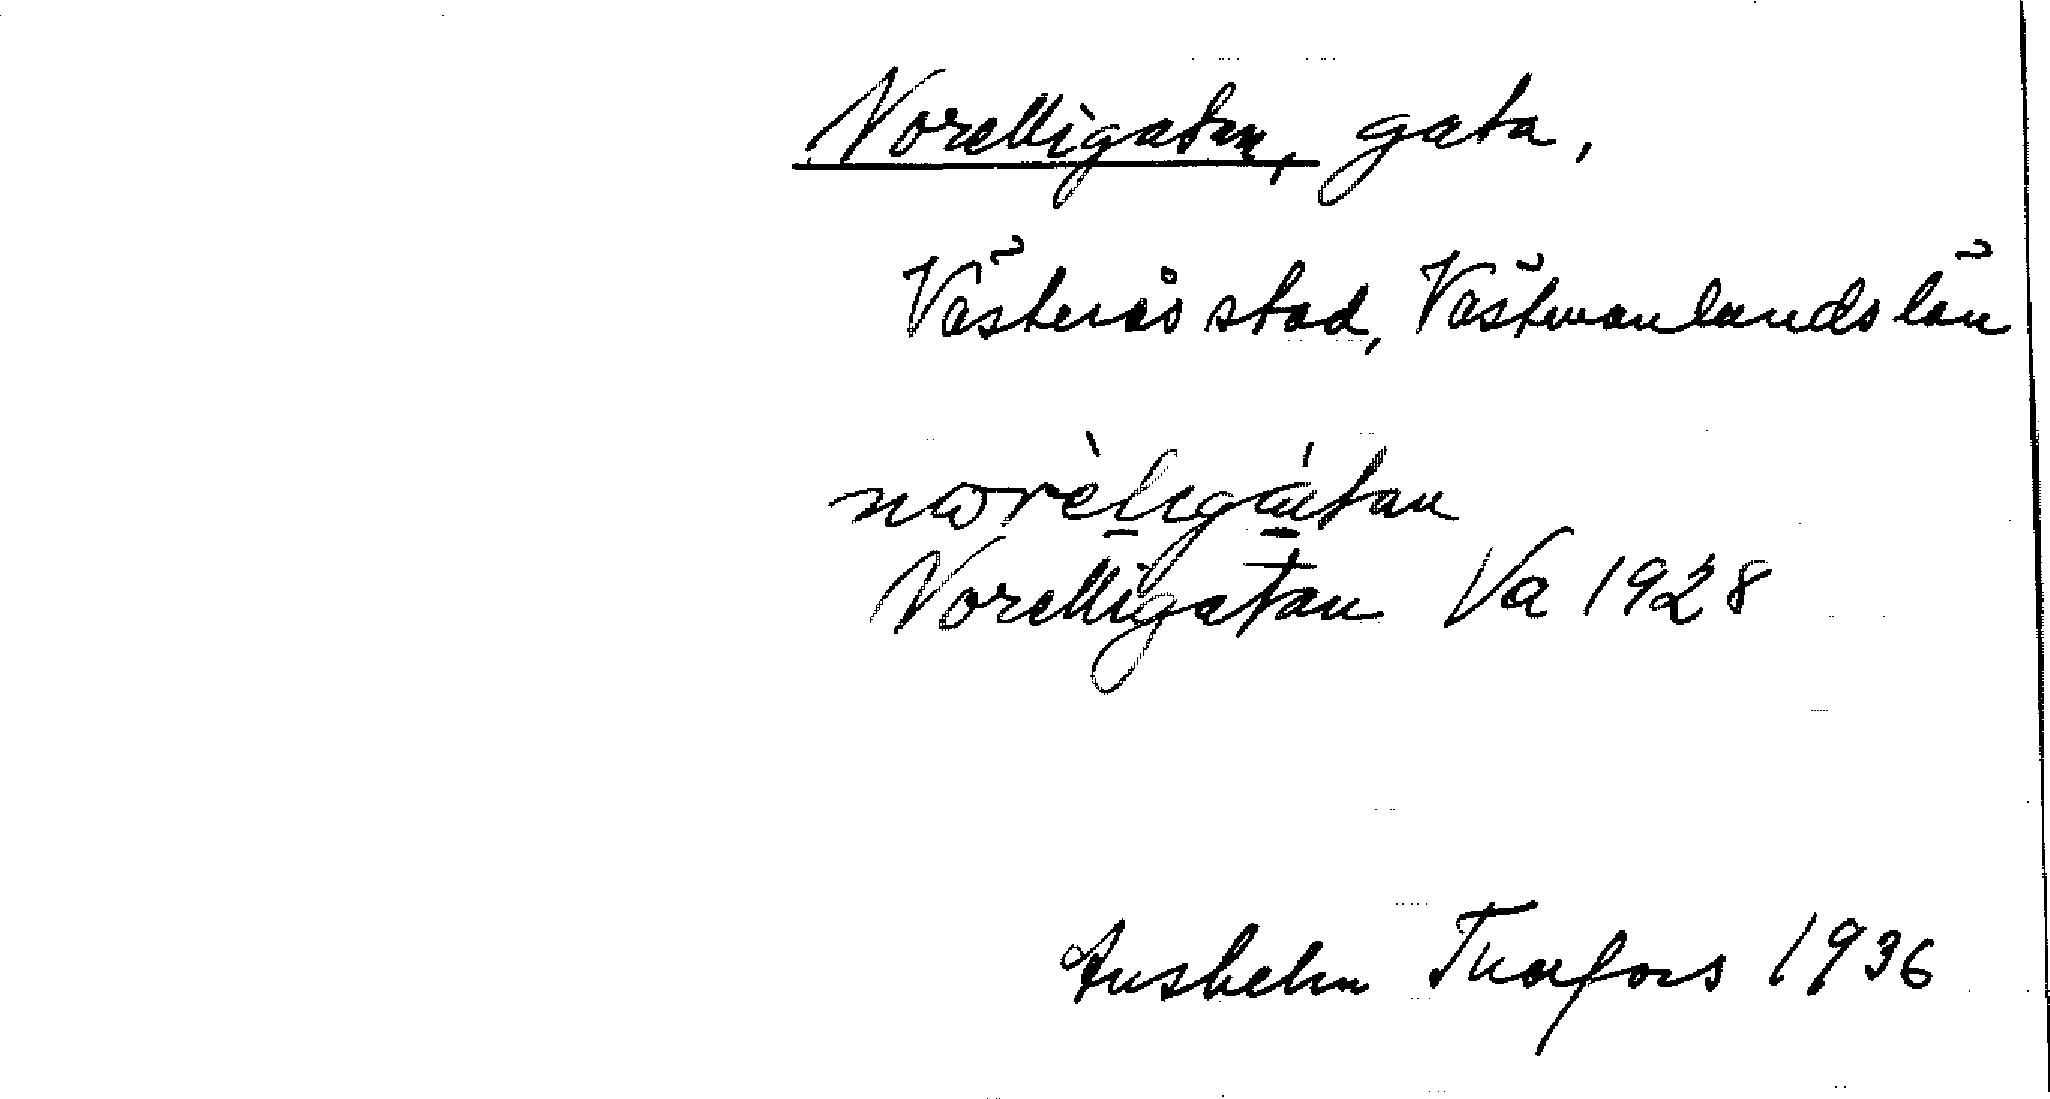 Norelligatan, gata,
Västerås stad, Västmanlands län
nωrèligátan
Norelligatan Va 1928
Anshelm Tuafors 1936